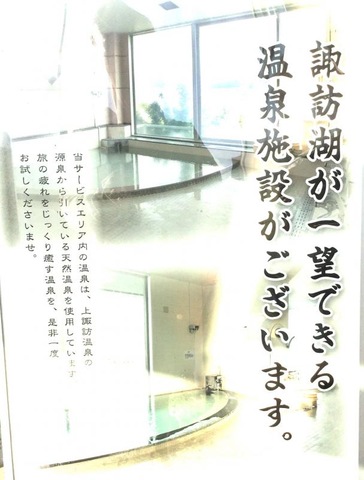 諏訪湖が一望できる
温泉施設がございます。
当サービスエリア内の温泉は、上諏訪温泉の
源泉から引いている天然温泉を使用しています
旅の疲れをじっくり癒す温泉を、是非一度
お試しくださいませ。